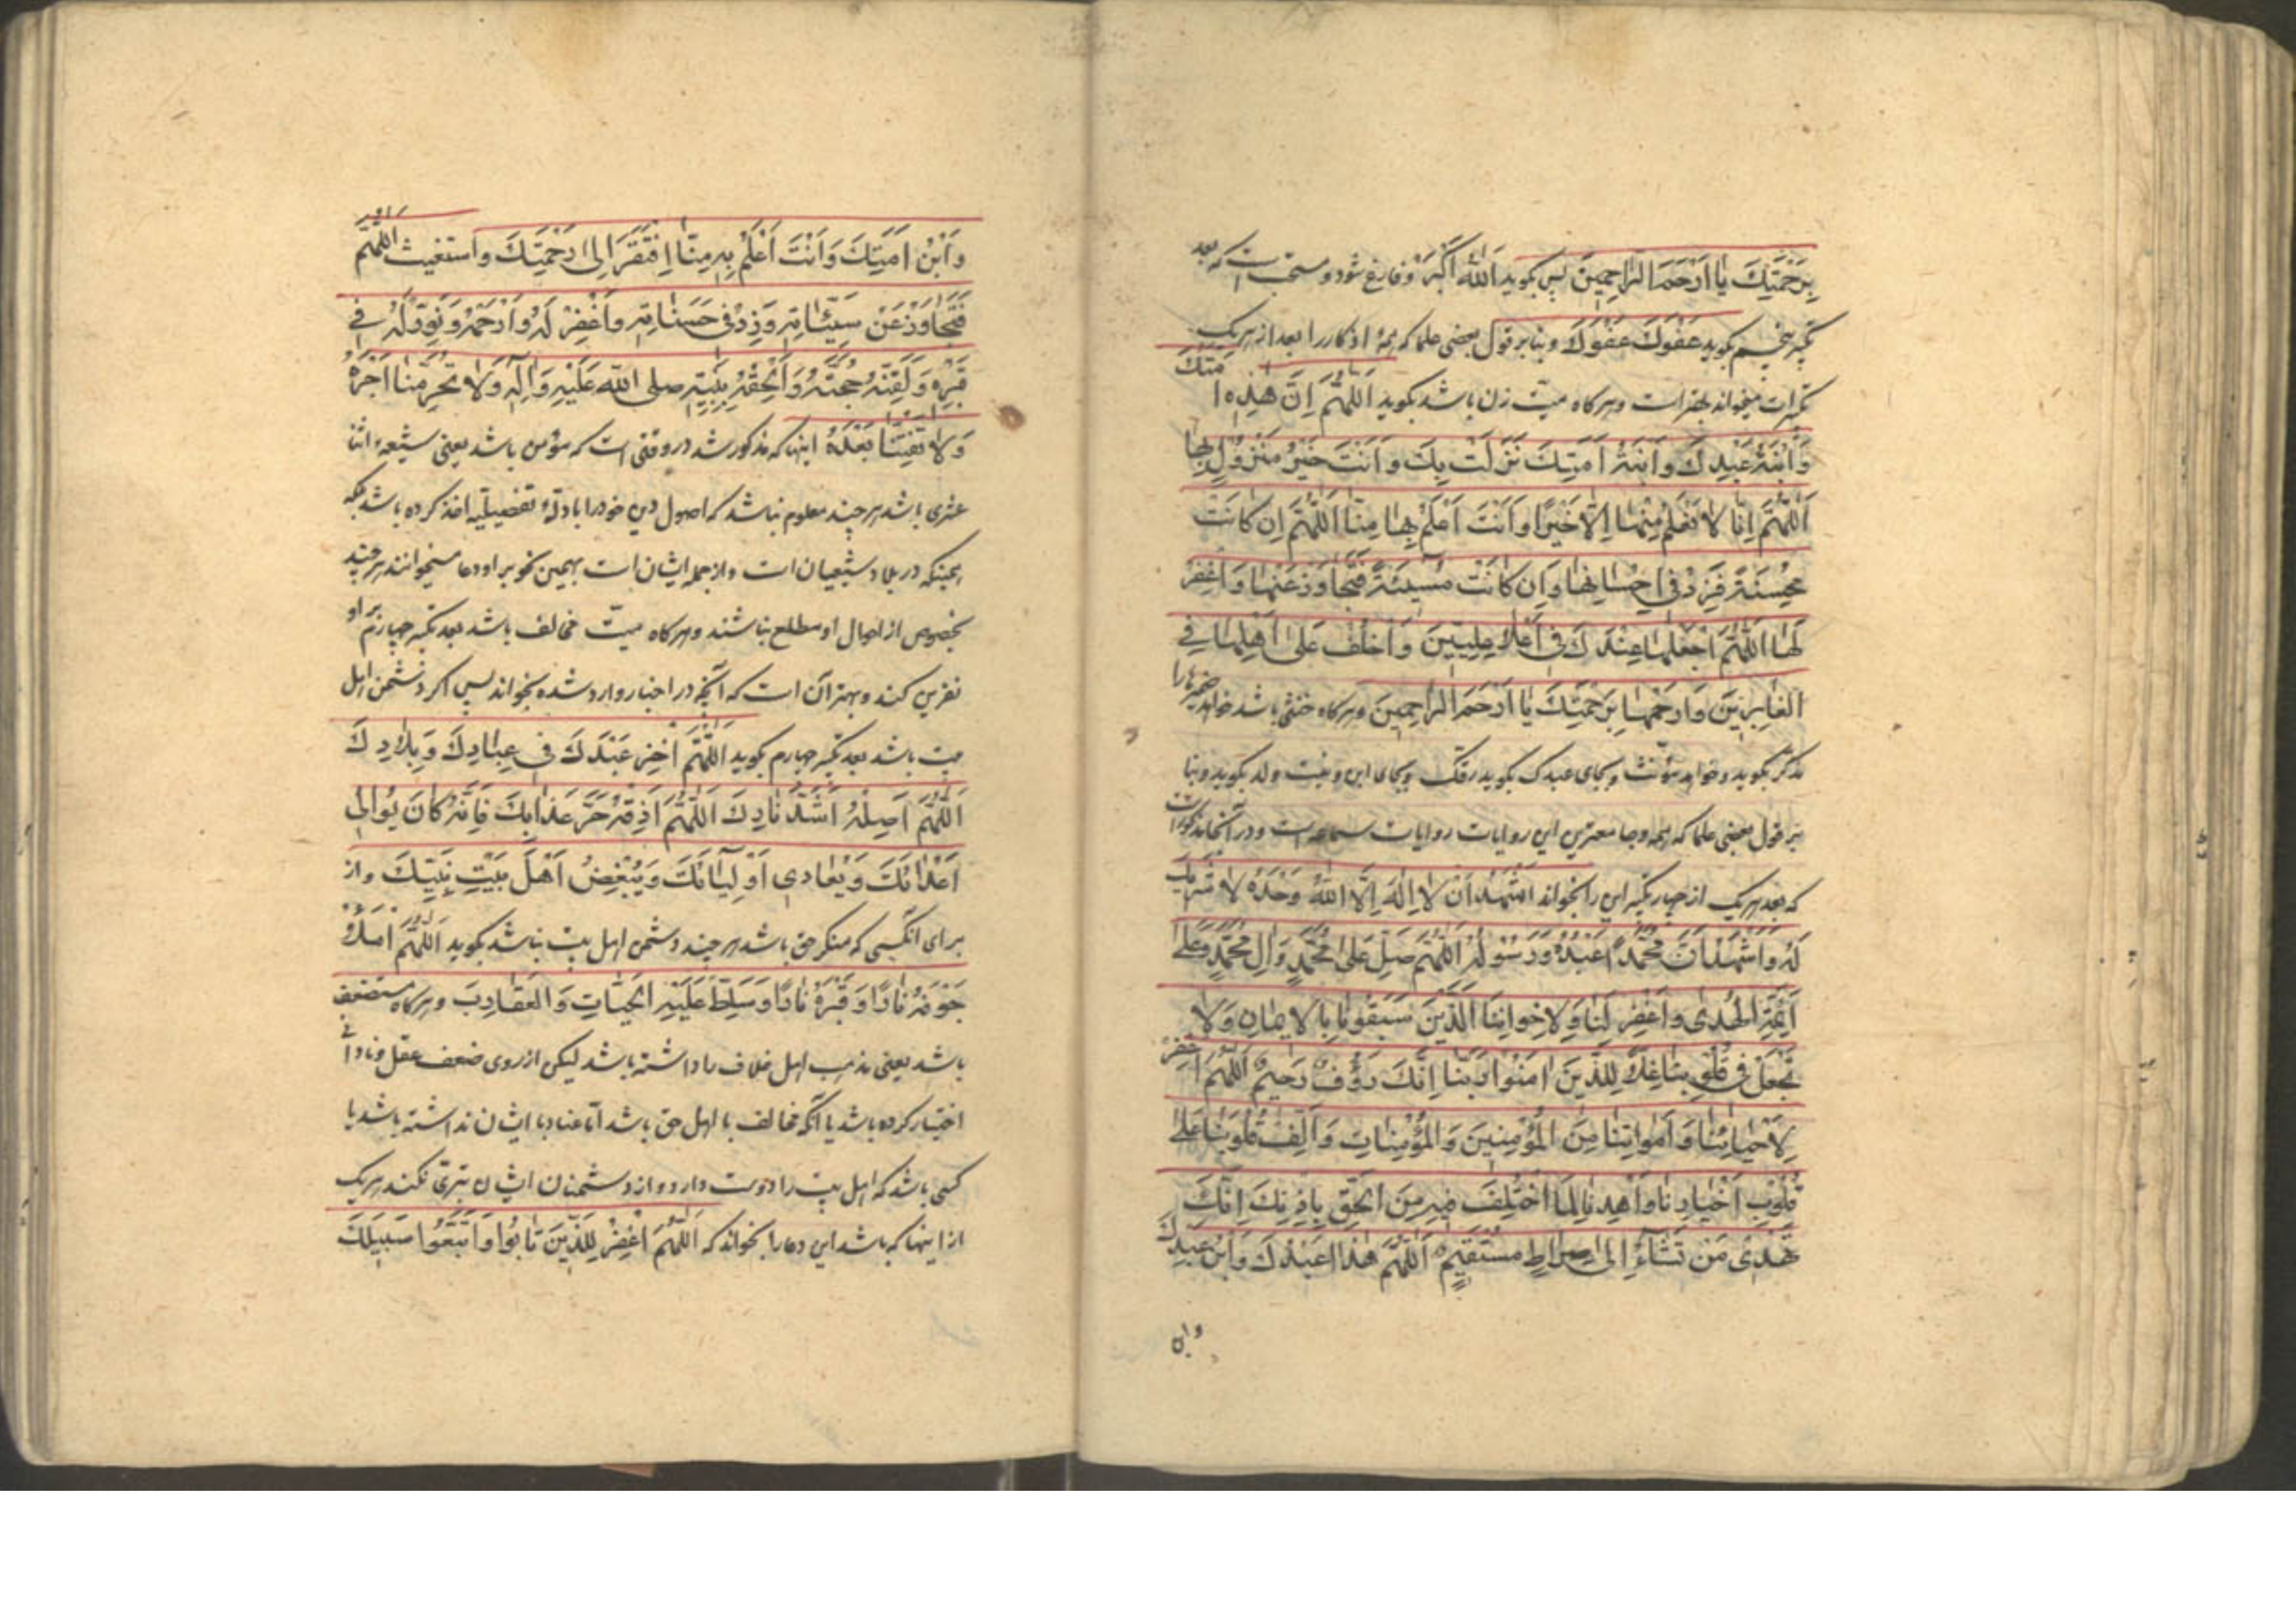 بِرَحْمَتِكَ يَا اَرْحَمَ الرَّاحِمِينَ پس بگوید اَللّٰهُ اَكْبَرُ و فارغ شود و مستحب است که بعد
تکبیر پنجم بگوید عَفْوَكَ عَفْوَكَ و بنابر قول بعضی علما که همهٔ اذکار را بعد از هریک
تکبیرات میخواند بهتر است و هرگاه میت زن باشد بگوید اَللّٰهُمَّ اِنَّ هٰذِهِ اَمَتُكَ
وَابْنَةُ عَبْدِكَ وَابْنَةُ اَمَتِكَ نَزَلَتْ بِكَ وَاَنْتَ خَيْرُ مَنْزُولٍ بِهَا
اَللّٰهُمَّ اِنَّا لَا نَعْلَمُ مِنْهَا اِلَّا خَيْرًا وَاَنْتَ اَعْلَمُ بِهَا مِنَّا اَللّٰهُمَّ اِنْ كَانَتْ
مُحْسِنَةً فَزِدْ فِي اِحْسَانِهَا وَاِنْ كَانَتْ مُسِيئَةً فَتَجَاوَزْ عَنْهَا وَاغْفِرْ
لَهَا اَللّٰهُمَّ اجْعَلْهَا عِنْدَكَ فِي اَعْلَا عِلِّيِّينَ وَاخْلُفْ عَلٰى اَهْلِهَا فِي
الْغَابِرِينَ وَارْحَمْهَا بِرَحْمَتِكَ يَا اَرْحَمَ الرَّاحِمِينَ و هرگاه خنثی باشد خواهد ضمیرها را
مذکر بگوید و خواهد مؤنث و بجای عبدک بگوید رقک و بجای ابن و بنت ولد بگوید و بنا
بر قول بعضی علما که همه وجا معتبرترین این روایات روایات سماعه است و در آنجا مذکور است
که بعد هریک از چهار تکبیر این را بخواند اَشْهَدُ اَنْ لَا اِلٰهَ اِلَّا اللّٰهُ وَحْدَهُ لَا شَرِيكَ
لَهُ وَاَشْهَدُ اَنَّ مُحَمَّدًا عَبْدُهُ وَرَسُولُهُ اَللّٰهُمَّ صَلِّ عَلٰى مُحَمَّدٍ وَآلِ مُحَمَّدٍ وَعَلٰى
اَئِمَّةِ الْهُدٰى وَاغْفِرْ لَنَا وَلِاِخْوَانِنَا الَّذِينَ سَبَقُونَا بِالْاِيمَانِ وَلَا
تَجْعَلْ فِي قُلُوبِنَا غِلًّا لِلَّذِينَ اٰمَنُوا رَبَّنَا اِنَّكَ رَؤُفٌ رَحِيمٌ اَللّٰهُمَّ اغْفِرْ
لِاَحْيَائِنَا وَاَمْوَاتِنَا مِنَ الْمُؤْمِنِينَ وَالْمُؤْمِنَاتِ وَاَلِّفْ قُلُوبَنَا عَلٰى
قُلُوبِ اَخْيَارِنَا وَاهْدِنَا لِمَا اخْتُلِفَ فِيهِ مِنَ الْحَقِّ بِاِذْنِكَ اِنَّكَ
تَهْدِي مَنْ تَشَاءُ اِلٰى صِرَاطٍ مُسْتَقِيمٍ اَللّٰهُمَّ هٰذَا عَبْدُكَ وَابْنُ عَبْدِكَ
وابن
وَابْنُ اَمَتِكَ وَاَنْتَ اَعْلَمُ بِهِ مِنَّا اِفْتَقَرَ اِلٰى رَحْمَتِكَ وَاسْتَغْنَيْتَ اَللّٰهُمَّ
فَتَجَاوَزْ عَنْ سَيِّئَاتِهِ وَزِدْ فِي حَسَنَاتِهِ وَاغْفِرْ لَهُ وَارْحَمْهُ وَنَوِّرْ لَهُ فِي
قَبْرِهِ وَلَقِّنْهُ حُجَّتَهُ وَاَلْحِقْهُ بِنَبِيِّهِ صلى اللّٰه عَلَيْهِ وَاٰلِهِ وَلَا تَحْرِمْنَا اَجْرَهُ
وَلَا تَفْتِنَّا بَعْدَهُ اینها که مذکور شد در وقتی است که مؤمن باشد یعنی شیعهٔ اثنا
عشری باشد هر چند معلوم نباشد که اصول دین خود را بادلهٔ تفصیلیه اخذ کرده باشد بلکه
همینکه در بلاد شیعیان است و از جمله ایشان است بهمین نحو بر او دعا میخوانند هر چند
بخصوص از احوال او مطلع نباشند و هرگاه میت مخالف باشد بعد تکبیر چهارم بر او
نفرین کند و بهتر آن است که آنچه در اخبار وارد شده بخواند پس اگر دشمن اهل
بیت باشد بعد تکبیر چهارم بگوید اَللّٰهُمَّ اَخْزِ عَبْدَكَ فِي عِبَادِكَ وَبِلَادِكَ
اَللّٰهُمَّ اَصْلِهِ اَشَدَّ نَارِكَ اَللّٰهُمَّ اَذِقْهُ حَرَّ عَذَابِكَ فَاِنَّهُ كَانَ يُوَالِي
اَعْدَائَكَ وَيُعَادِي اَوْلِيَائَكَ وَيُبْغِضُ اَهْلَ بَيْتِ نَبِيِّكَ و از
برای آنکسی که منکر حق باشد هر چند دشمن اهل بیت نباشد بگوید اَللّٰهُمَّ امْلَأْ
جَوْفَهُ نَارًا وَقَبْرَهُ نَارًا وَسَلِّطْ عَلَيْهِ الْحَيَّاتِ وَالْعَقَارِبَ و هرگاه مستضعف
باشد یعنی مذهب اهل خلاف را داشته باشد لیکن از روی ضعف عقل و نادانی
اختیار کرده باشد یا آنکه مخالف با اهل حق باشد اما عناد با ایشان نداشته باشد یا
کسی باشد که اهل بیت را دوست دارد و از دشمنان ایشان تبری نکند هریک
از اینها که باشد این دعا را بخواند که اَللّٰهُمَّ اغْفِرْ لِلَّذِينَ تَابُوا وَاتَّبَعُوا سَبِيلَكَ